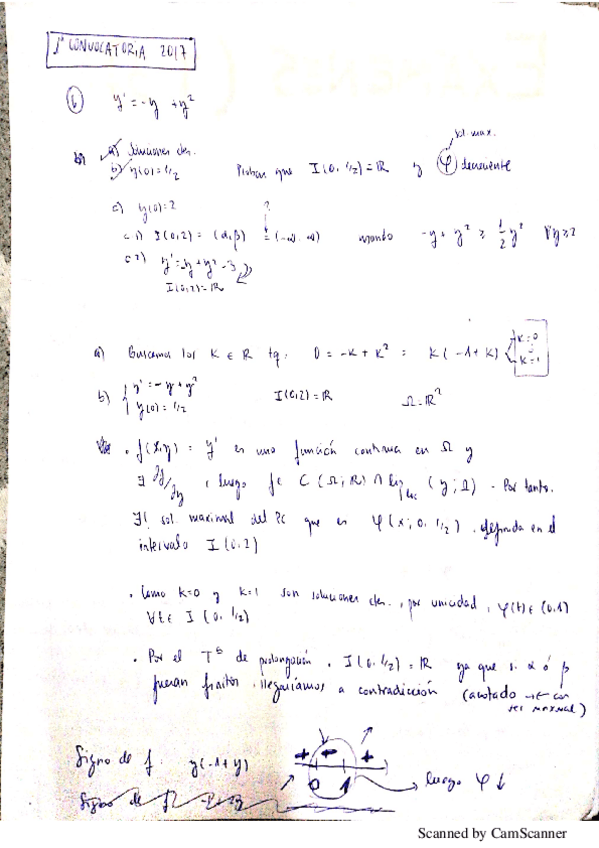 1ª CONVOCATORIA 2017
⑥ y' = -y + y²
a) Soluciones ctes.
sol. max.
b) y(0) = 1/2 Probar que I(0, 1/2) = ℝ y φ decreciente
c) y(0) = 2 ?
c.1) I(0,2) = (α, β) = (-∞, ∞) usando -y + y² ≥ 1/2 y² ∀y ≥ 2
c.2) y' = -y + y² - 3
I(0,2) = ℝ
a) Buscamos los K ∈ ℝ tq. 0 = -K + K² = K(-1 + K) K=0
K=1
b) y' = -y + y² I(0,2) = ℝ Ω = ℝ²
y(0) = 1/2
· f(x,y) = y' es una función continua en Ω y
∃ ∂f/∂y , luego f ∈ C(Ω; ℝ) ∩ Lip loc (y; Ω) . Por tanto.
∃! sol. maximal del PC que es φ(x; 0, 1/2) . definida en el
intervalo I(0,2)
· Como K=0 y K=1 son soluciones ctes. , por unicidad , φ(t) ∈ (0,1)
∀t ∈ I(0, 1/2)
· Por el Tª de prolongación , I(0, 1/2) = ℝ ya que si α ó β
fueran finitos , llegaríamos a contradicción (acotado con
ser maximal)
Signo de f. y(-1+y) + - +
0 1 luego φ ↓
Signo de f
Scanned by CamScanner